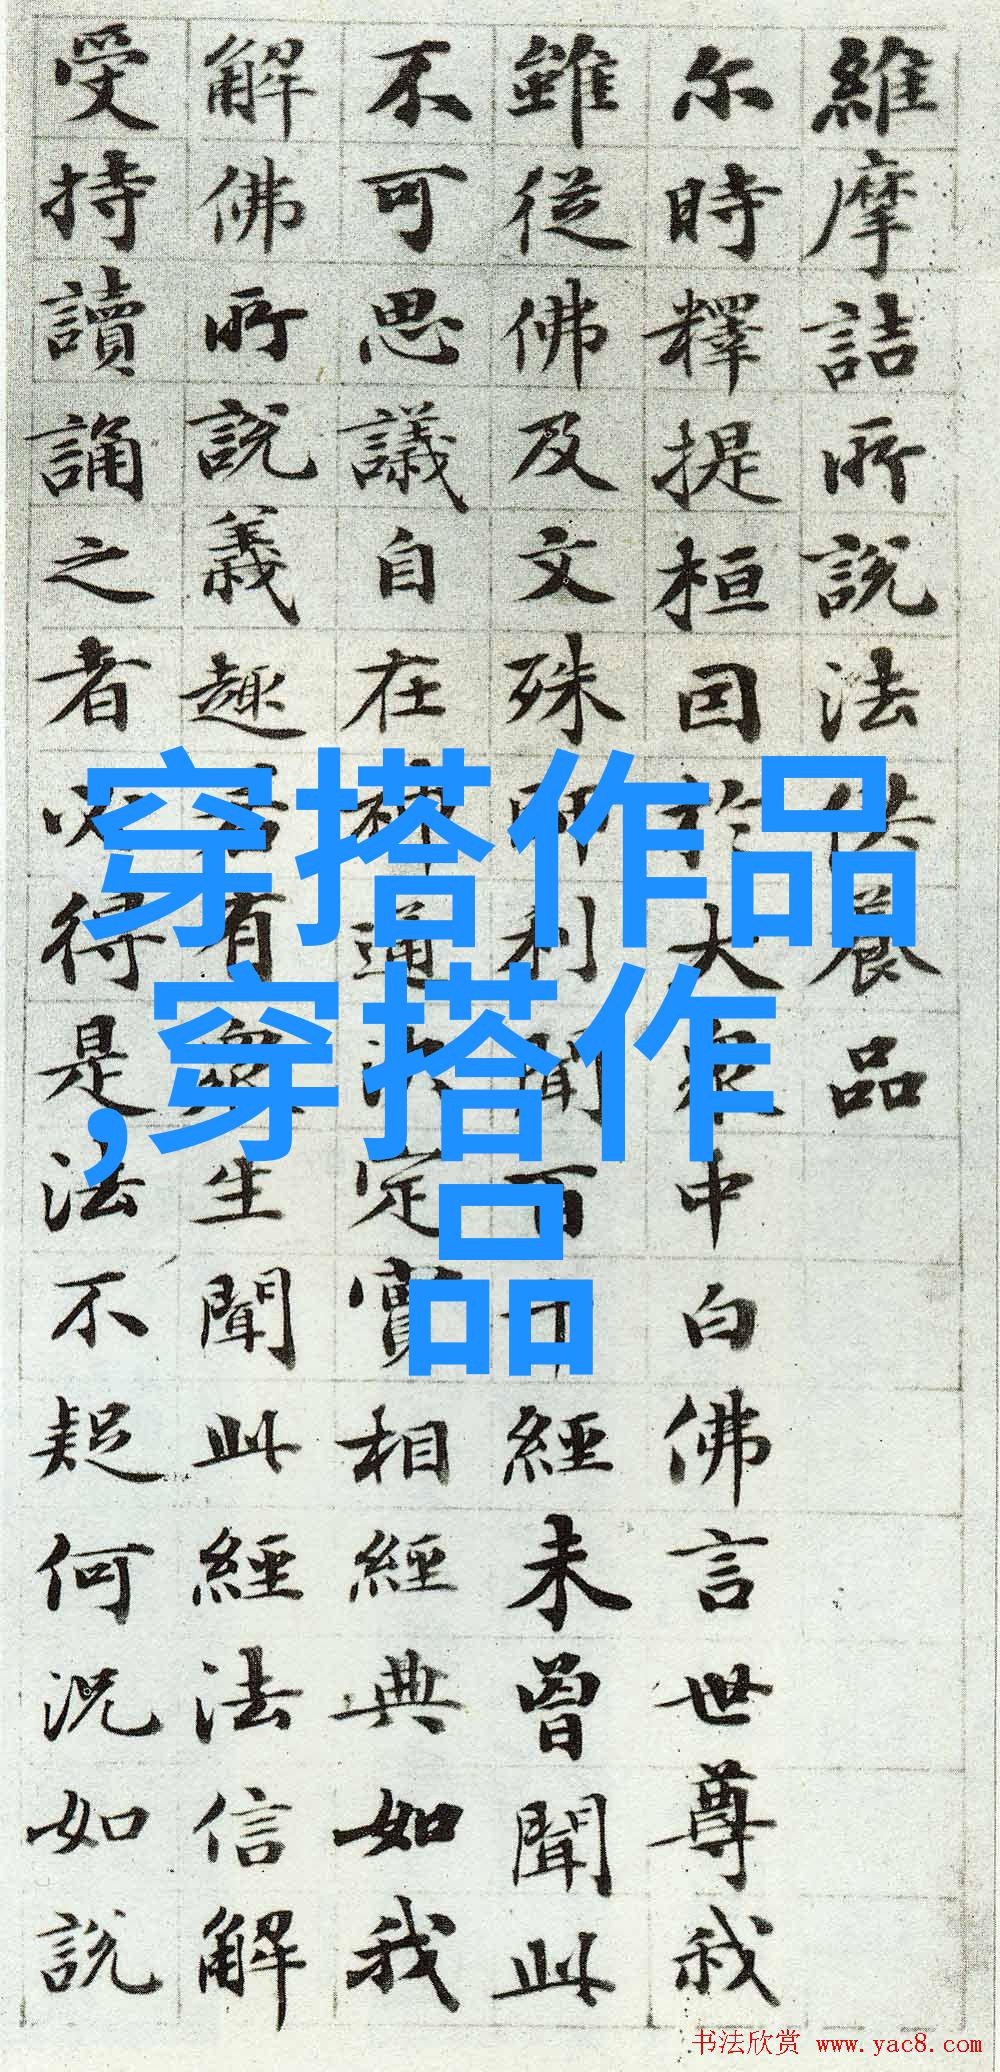 維摩詰所說法供養品
尔時釋提桓因於大衆中白佛言世尊我
雖從佛及文殊師利聞百千經未曾聞此
不可思議自在神通決定實相經典如我
解佛所說義趣若有衆生聞此經法信解
受持讀誦之者必得是法不疑何況如說
穿搭作品
,穿搭作
品
书法欣赏 www.yac8.com